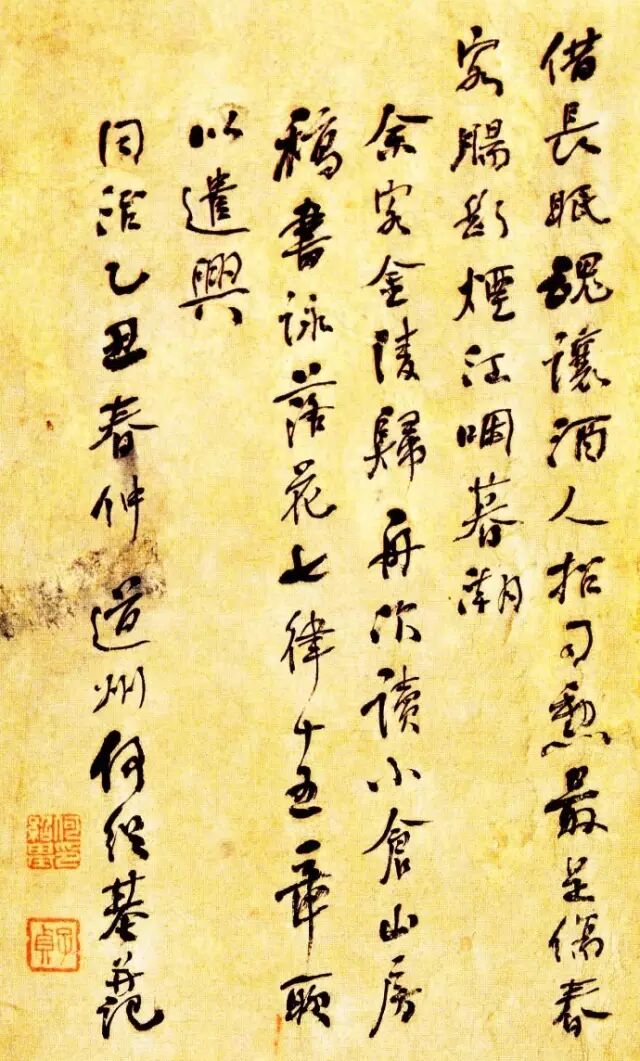 借長眠魂讓酒人招司勳最是傷春
客腸斷煙江咽暮潮
余客金陵歸舟次讀小倉山房
稿書詠落花七律十五章聊
以遣興
同治乙丑春仲道州何紹基
何紹基印
子貞